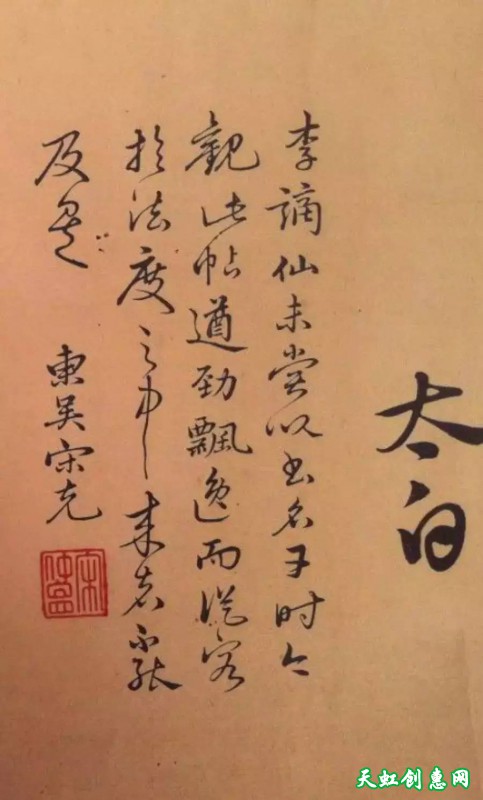 太白
李謫仙未嘗以書名于時今
觀此帖遒勁飄逸而從容
於法度之中來者不能
及是 東吳宋克
天虹创惠网